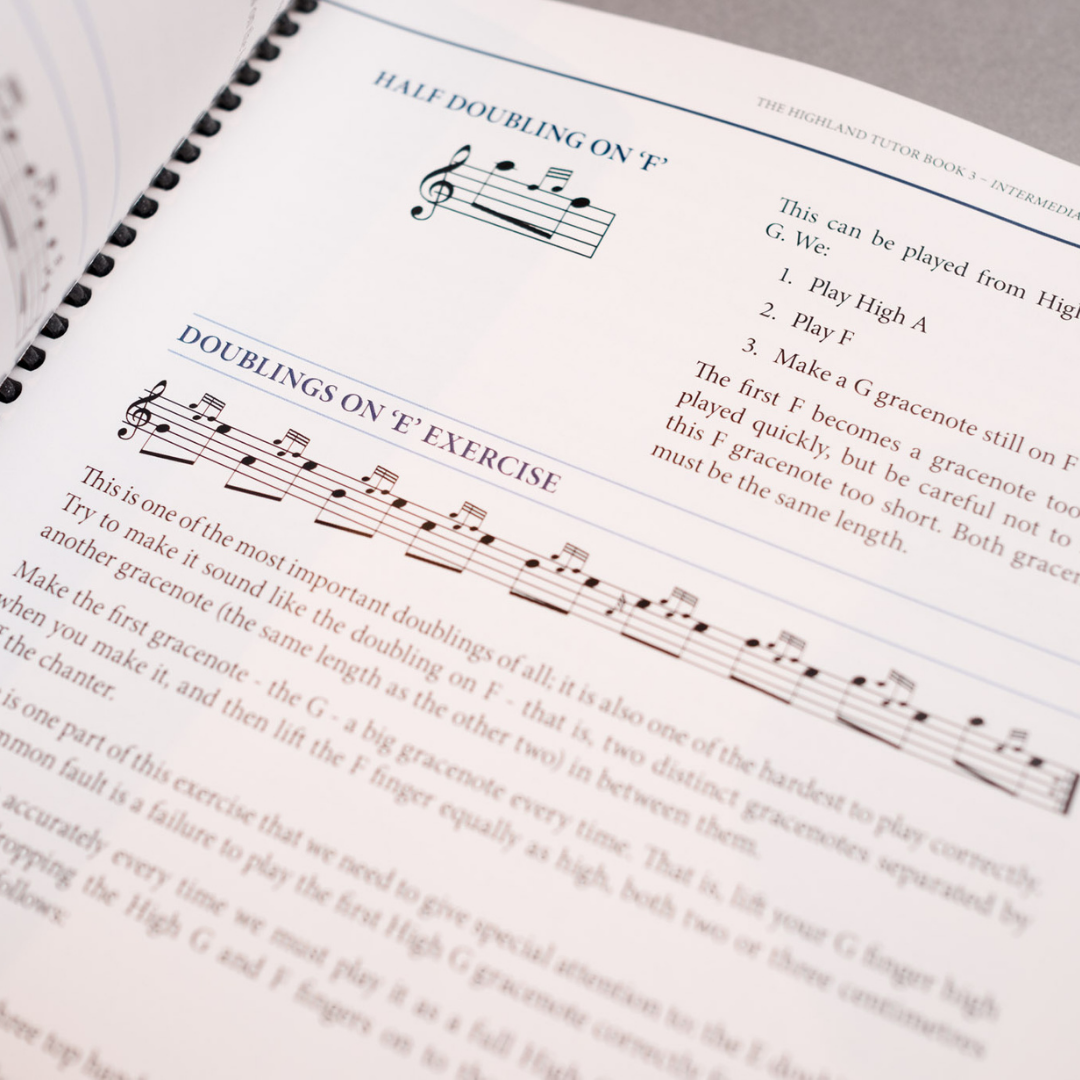 THE HIGHLAND TUTOR BOOK 3 – INTERMEDIA
HALF DOUBLING ON ‘F’
This can be played from High
G. We:
1. Play High A
2. Play F
3. Make a G gracenote still on F
The first F becomes a gracenote too
played quickly, but be careful not to
this F gracenote too short. Both gracen
must be the same length.
DOUBLINGS ON ‘E’ EXERCISE
This is one of the most important doublings of all; it is also one of the hardest to play correctly.
Try to make it sound like the doubling on F - that is, two distinct gracenotes separated by
another gracenote (the same length as the other two) in between them.
Make the first gracenote - the G - a big gracenote every time. That is, lift your G finger high
when you make it, and then lift the F finger equally as high, both two or three centimetres
the chanter.
is one part of this exercise that we need to give special attention to the E
mmon fault is a failure to play the first High G gracenote correctly
accurately every time we must play it as a full High
ropping the High G and F fingers on to the
follows:
three top hand